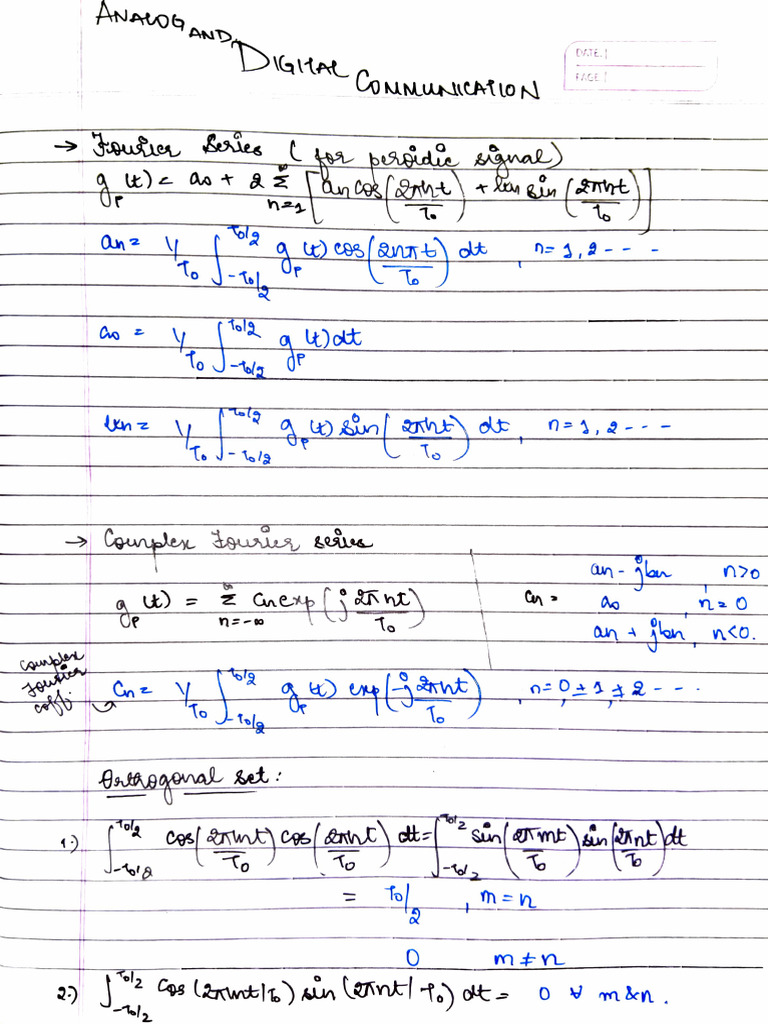 ANALOG AND DIGITAL COMMUNICATION
DATE:
PAGE:
→ Fourier Series ( for peroidic signal)
g_p(t) = a0 + 2 ∞Σn=1 [an cos(2πnt/T0) + bn sin(2πnt/T0)]
an = 1/T0 ∫_{-T0/2}^{T0/2} g_p(t) cos(2nπt/T0) dt , n = 1, 2 - - - -
a0 = 1/T0 ∫_{-T0/2}^{T0/2} g_p(t) dt
bn = 1/T0 ∫_{-T0/2}^{T0/2} g_p(t) sin(2πnt/T0) dt, n = 1, 2 - - -
→ Complex Fourier series
g_p(t) = ∞Σn=-∞ cn exp(j 2πnt/T0)
cn = an - jbn , n>0
a0 , n = 0
an + jbn, n<0.
complex
Fourier
coff.
Cn = 1/T0 ∫_{-T0/2}^{T0/2} g_p(t) exp(-j2πnt/T0) , n = 0, ±1, ±2 - - -
Orthogonal set:
1.) ∫_{-T0/2}^{T0/2} cos(2πmt/T0) cos(2πnt/T0) dt = ∫_{-T0/2}^{T0/2} sin(2πmt/T0) sin(2πnt/T0) dt
= T0/2 , m = n
0 m ≠ n
2.) ∫_{-T0/2}^{T0/2} cos(2πmt/T0) sin(2πnt/T0) dt = 0 ∀ m & n.